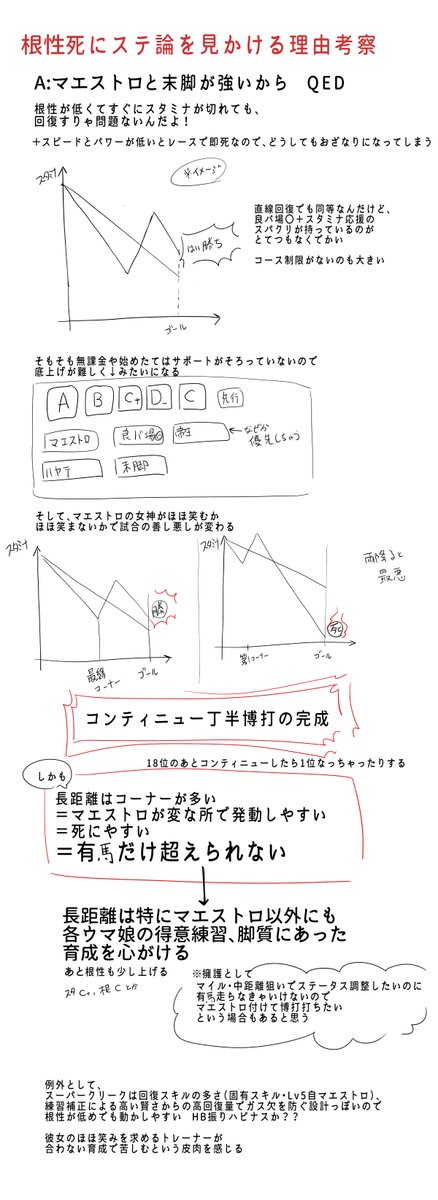 根性死にステ論を見かける理由考察
A:マエストロと末脚が強いから　QED
根性が低くてすぐにスタミナが切れても、
回復すりゃ問題ないんだよ!
+スピードとパワーが低いとレースで即死なので、どうしてもおざなりになってしまう
スタミナ
※イメージ
はい勝ち
ゴール
直線回復でも同等なんだけど、
良バ場〇+スタミナ応援の
スパクリが持っているのが
とてつもなくでかい
コース制限がないのも大きい
そもそも無課金や始めたてはサポートがそろっていないので
底上げが難しく↓みたいになる
A B C+ D C 先行
マエストロ 良バ場◎ 帝王 ←なぜか
優先しちゃう
ハヤテ 末脚
そして、マエストロの女神がほほ笑むか
ほほ笑まないかで試合の善し悪しが変わる
スタミナ
勝
最終
コーナー
ゴール
スタミナ
死
第1コーナー
ゴール
雨降ると
最悪
コンティニュー丁半博打の完成
18位のあとコンティニューしたら1位なっちゃったりする
しかも
長距離はコーナーが多い
=マエストロが変な所で発動しやすい
=死にやすい
=有馬だけ超えられない
長距離は特にマエストロ以外にも
各ウマ娘の得意練習、脚質にあった
育成を心がける
あと根性も少し上げる
スタC+、根Cとか
※擁護として
マイル・中距離狙いでステータス調整したいのに
有馬走らなきゃいけないので
マエストロ付けて博打打ちたい
という場合もあると思う
例外として、
スーパークリークは回復スキルの多さ(固有スキル・Lv5自マエストロ)、
練習補正による高い賢さからの高回復量でガス欠を防ぐ設計っぽいので
根性が低めでもしやすい　HB振りハピナスか??
彼女のほほ笑みを求めるトレーナーが
合わない育成で苦しむという皮肉を感じる